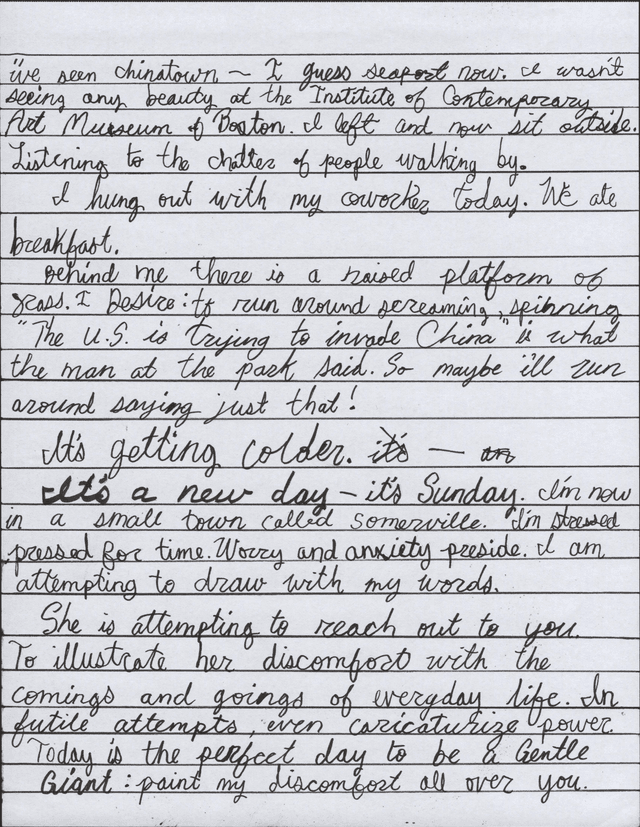 i've seen chinatown ~ I guess seaport now. I wasn't
seeing any beauty at the Institute of Contemporary
Art Museum of Boston. I left and now sit outside.
Listening to the chatter of people walking by.
I hung out with my coworker today. We ate
breakfast.
Behind me there is a raised platform of
grass. I Desire: to run around screaming, spinning
"The U.S. is trying to invade China" is what
the man at the park said. So maybe i'll run
around saying just that!
It's getting colder. it's —
It's a new day – it's Sunday. I'm now
in a small town called Somerville. I'm stressed
pressed for time. Worry and anxiety preside. I am
attempting to draw with my words.
She is attempting to reach out to you.
To illustrate her discomfort with the
comings and goings of everyday life. In
futile attempts, even caricaturize power.
Today is the perfect day to be a Gentle
Giant: paint my discomfort all over you.